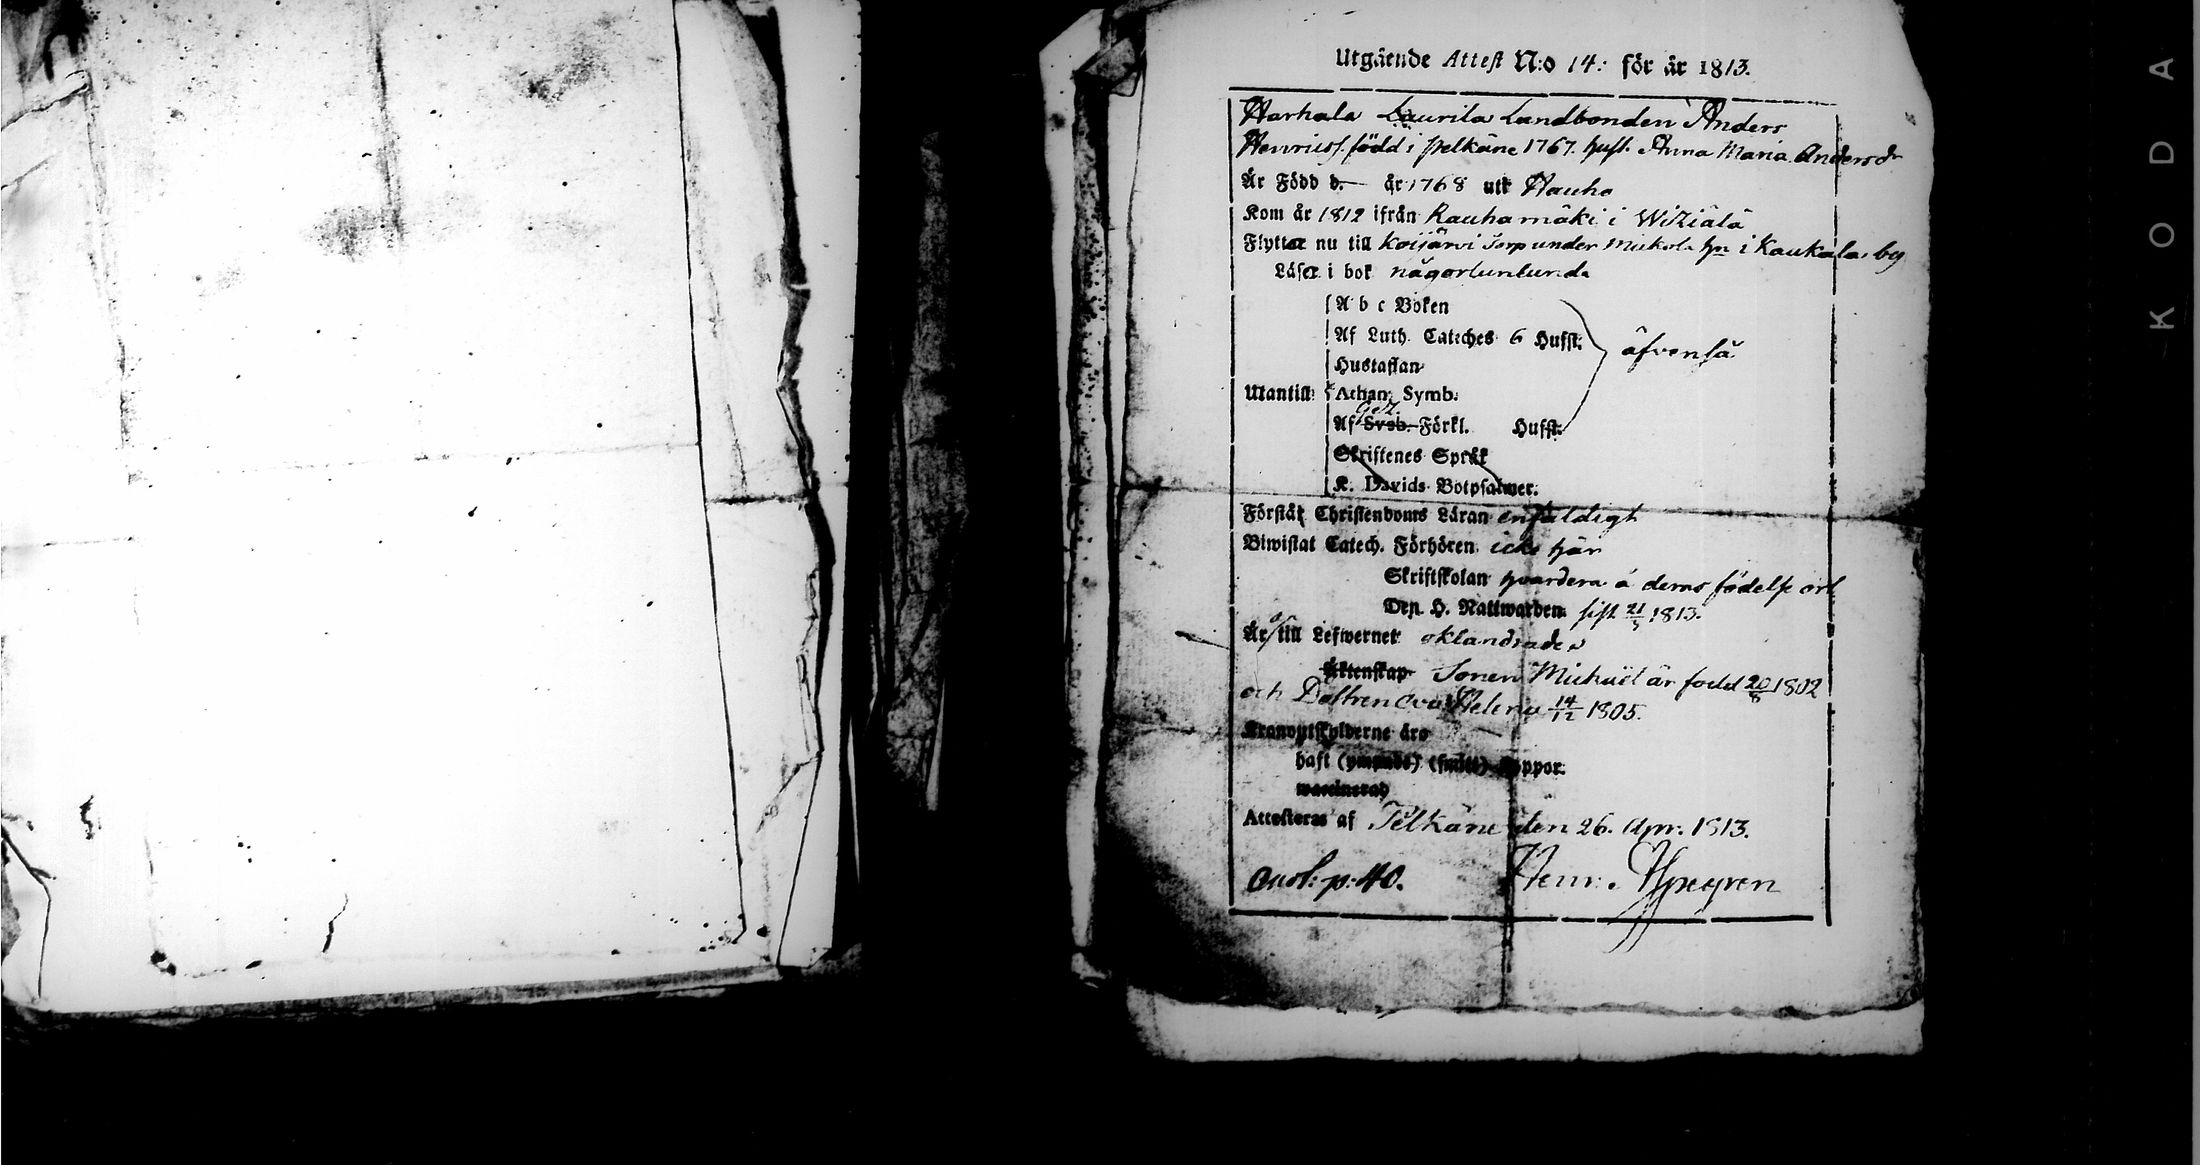 Utgående Attest N:o 14: för år 1813.
Harhala Laurila Landbonden Anders
Henricss. född i Pelkäne 1767. hust. Anna Maria Andersdr
Är Född d.— år 1768 uti Hauho
Kom år 1812 ifrån Rauhamäki i Wiziälä
Flyttar nu till Koijärvi Torp under Mickola hn i Kaukala by
Läser i bok någorlunlunda
A b c Boken
Af Luth. Cateches 6 Hufst.
äfvenså
Hustaflan
Utantill: Athan. Symb.
Gez.
Af Sveb. Förkl. Hufst.
Skriftenes Språk
K. Davids Botpsalmer.
Förstår Christendoms Läran enfaldigt
Biwistat Catech. Förhören icke här
Skriftskolan hvardera å deras födelse ort
Den H. Nattwarden sist 21/3 1813.
Är till Lefwernet oklandrade
Äktenskap Sonen Michaël är född 20/8 1802
och Dottren Eva Helena 14/12 1805.
Kronoutskylderne äro
haft (ympade) (smitt) koppor.
waccinerad
Attesteras af Pelkäne den 26. Apr. 1813.
p: 40. Henr.
KODA